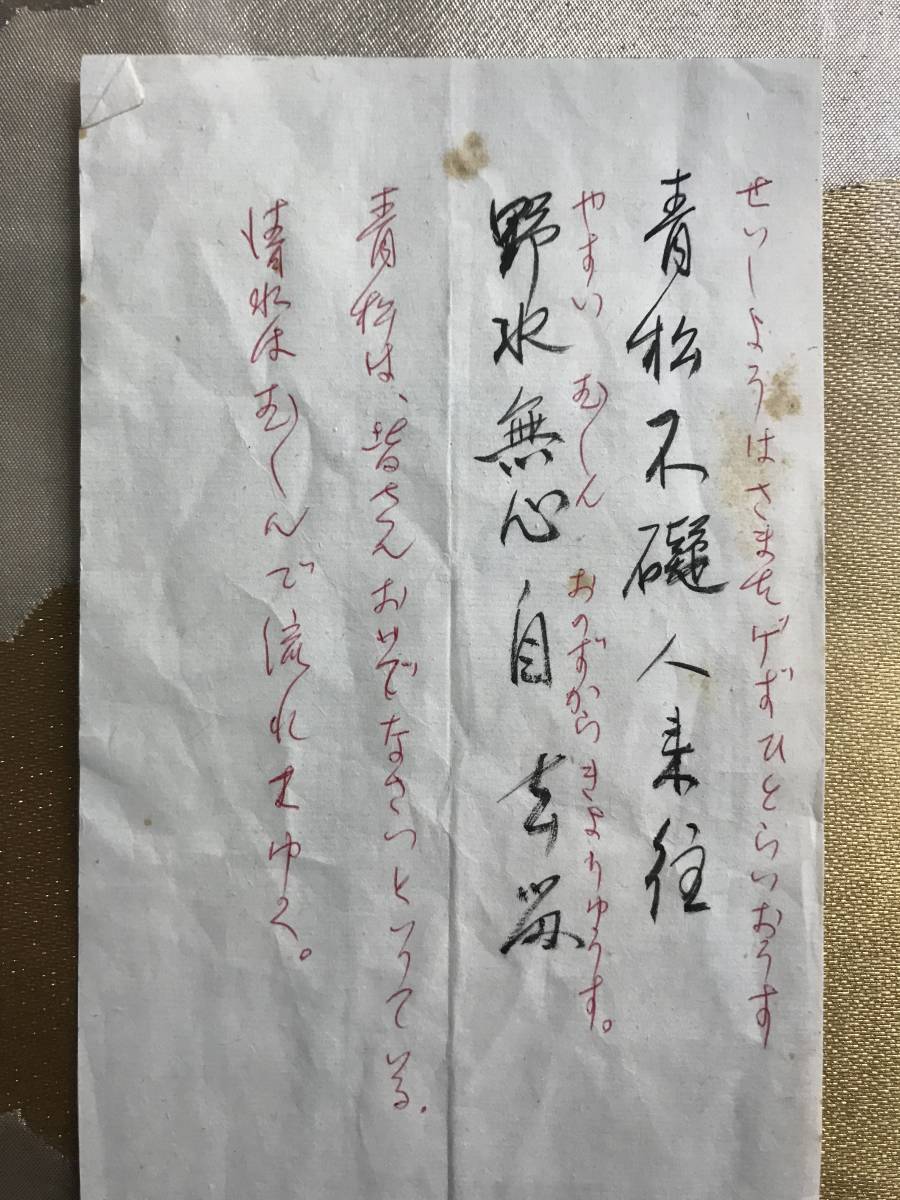 せいしようはさまたげずひとらいおうす
青松不礙人来往
やすい むしん おのずからきよりゆうす。
野水無心自去留
青松は、皆さんおいでなさいといつている.
清水はむしんで流れてゆく。